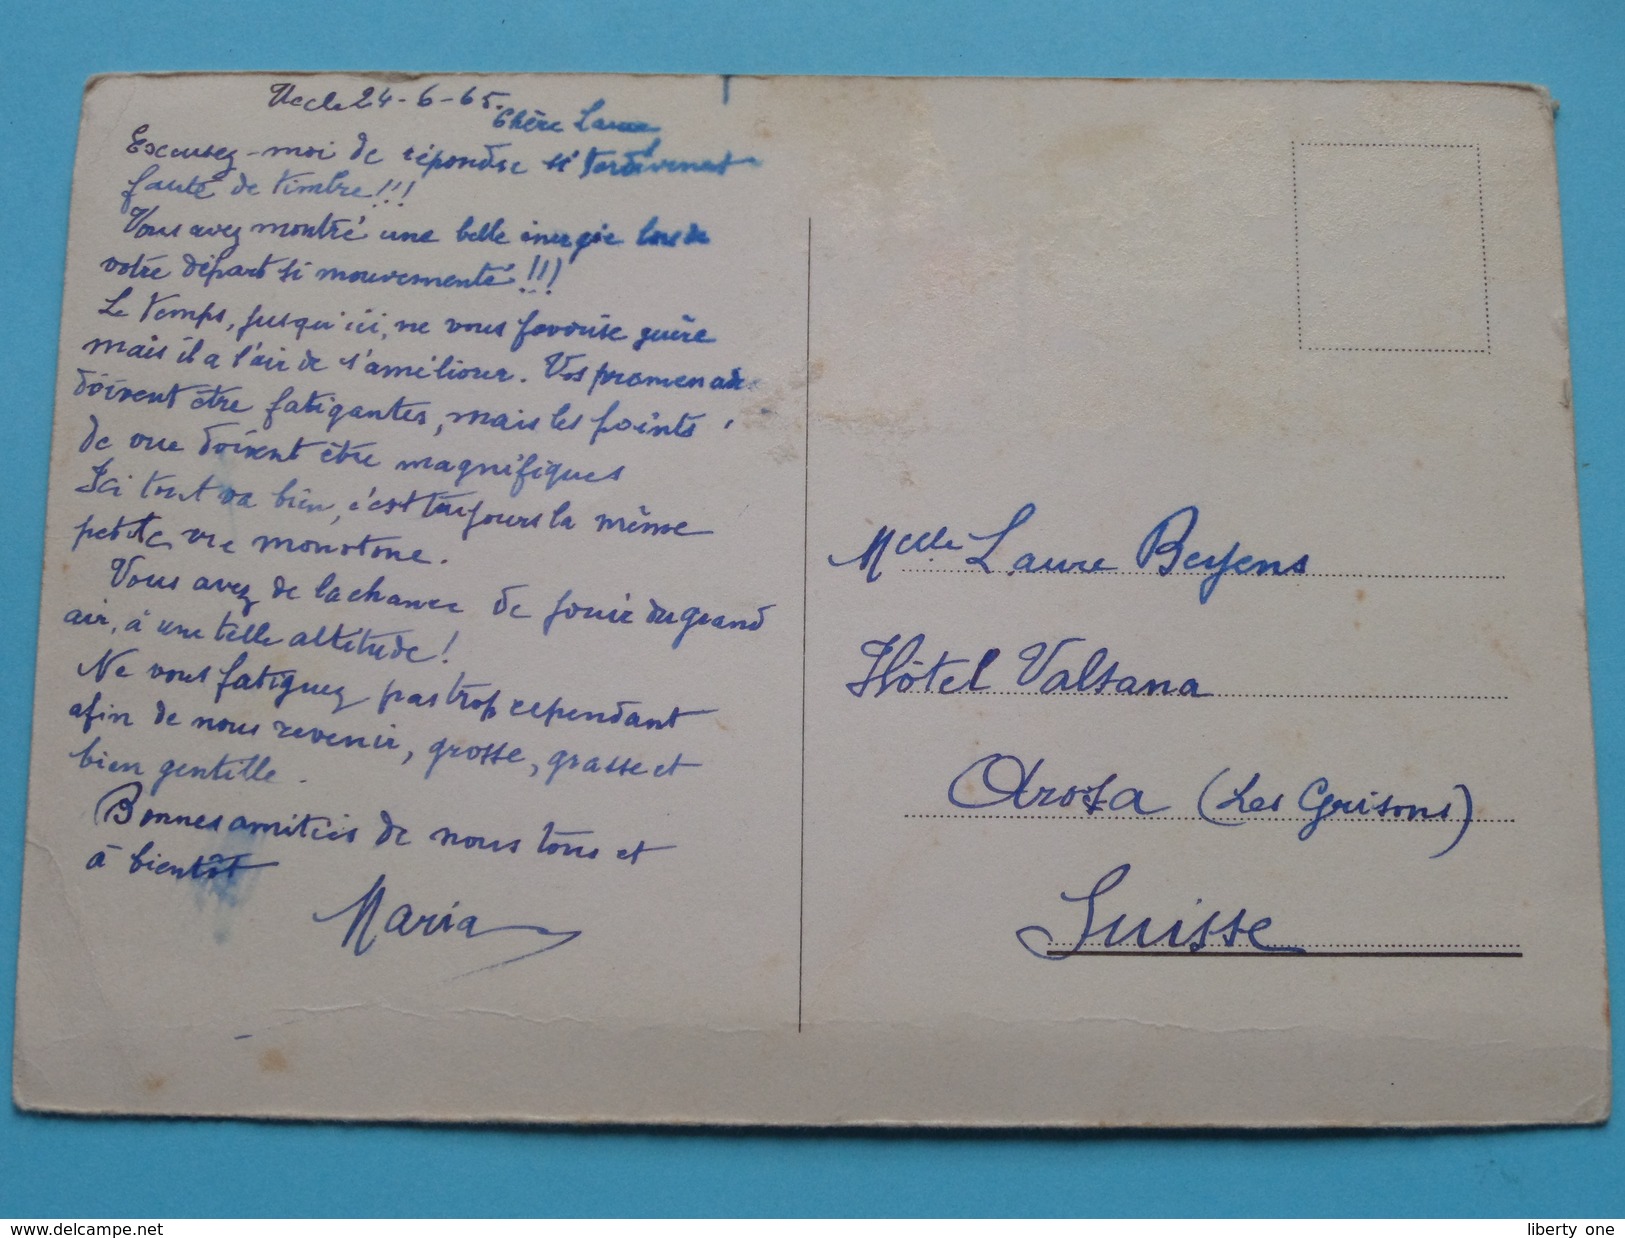 Uccle 24-6-65.
Chère Laure
Excusez-moi de répondre si tardivement
faute de timbre!!!
Vous avez montré une belle énergie lors de
votre départ si mouvementé!!!
Le temps, jusqu'ici, ne vous favorise guère
mais il a l'air de s'améliorer. Vos promenades
doivent être fatigantes, mais les points
de vue doivent être magnifiques
Ici tout va bien, c'est toujours la même
petite vie monotone.
Vous avez de la chance de jouir du grand
air, à une telle altitude!
Ne vous fatiguez pas trop cependant
afin de nous revenir, grosse, grasse et
bien gentille.
Bonnes amitiés de nous tous et
à bientôt
Maria
Melle Laure Beyens
Hôtel Valsana
Arosa (Les Grisons)
Suisse
www.delcampe.net
liberty one